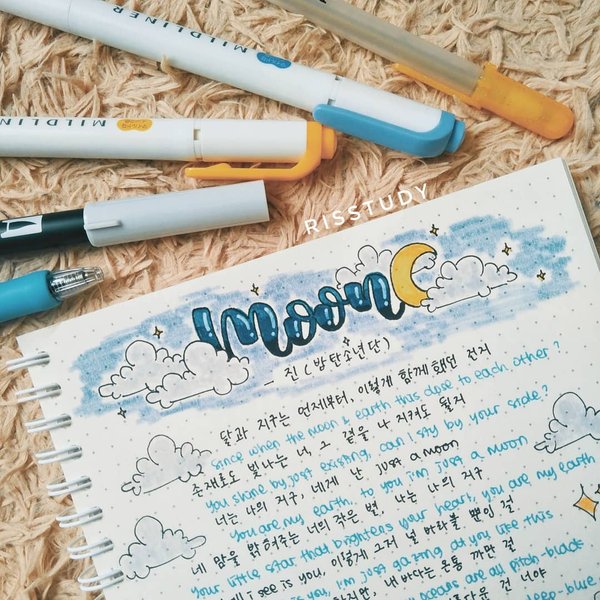 MILDLINER
MILDLINER
RISSTUDY
moon
- 진 (방탄소년단)
달과 지구는 언제부터, 이렇게 함께 했던 건지
since when the moon & earth this close to each other?
존재로도 빛나는 너, 그 곁을 나 지켜도 될지
You shine by just existing, can I stay by your side?
너는 나의 지구, 네게 난 just a moon
You are my earth, to you i'm just a moon
네 맘을 밝혀주는 너의 작은 별, 너는 나의 지구
Your little star that brightens your heart, you are my earth
i see is you, 이렇게 그저 널 바라볼 뿐인 걸
is you, i'm just gazing at you like this
내 바다는 온통 까만 걸
oceans are all pitch-black
다운 건 너야
deep-blue